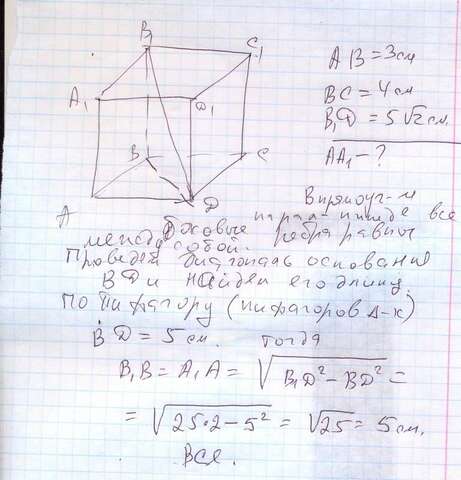 B₁
C₁
A₁
D₁
B
C
A
D
AB = 3см
BC = 4см
B₁D = 5√2 см.
AA₁ - ?
В прямоуг-м
парал-пипеде все
боковые ребра равны
между собой.
Проведем диагональ основания
BD и найдем его длину.
По Пифагору (пифагоров Δ-к)
BD = 5 см. тогда
B₁B = A₁A = √(B₁D² - BD²) =
= √(25·2 - 5²) = √25 = 5см.
Все.